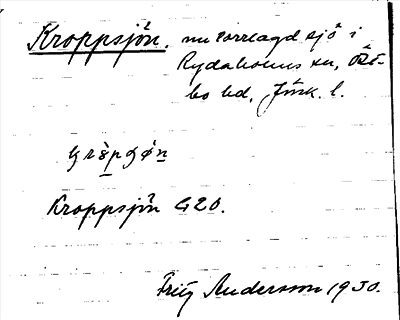 Kroppsjön. nu torrlagd sjö i
Rydaholms sn, Östbo hd, Jönk. l.
Kroppsjön G20.
Fritz Andersson 1930.